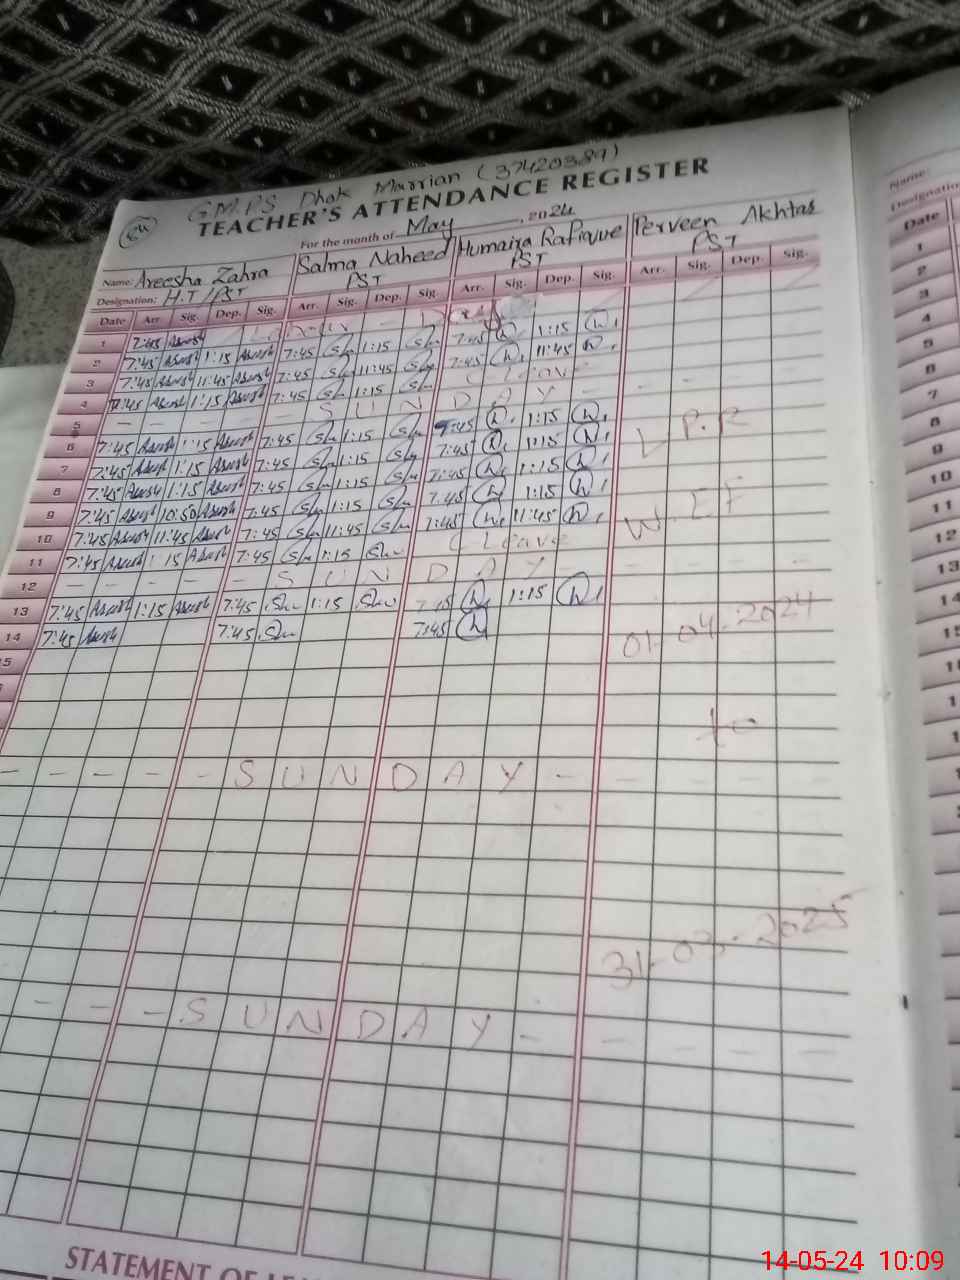 G.M.P.S Dhok Marrian (37420389)
TEACHER'S ATTENDANCE REGISTER
For the month of May, 2024
Name: Areesha Zahra Salma Naheed Humaira Rafique Perveen Akhtar
Designation: H.T / PST PST PST PST
Date Arr. Sig. Dep. Sig. Arr. Sig. Dep. Sig. Arr. Sig. Dep. Sig. Arr. Sig. Dep. Sig.
1 7:45 Labour - Day
2 7:45 1:15 7:45 1:15 7:45 1:15
3 7:45 11:45 7:45 11:45 7:45 11:45
4 7:45 1:15 7:45 1:15 C Leave
5 - - - - - S U N D A Y - - - - -
6 7:45 1:15 7:45 1:15 7:45 1:15
7 7:45 1:15 7:45 1:15 7:45 1:15
L P.R
8 7:45 1:15 7:45 1:15 7:45 1:15
9 7:45 10:50 7:45 1:15 7:45 1:15
10 7:45 11:45 7:45 11:45 7:45 11:45
W.EF
11 7:45 1:15 7:45 1:15 C Leave
12 - - - - - S U N D A Y - - - - -
13 7:45 1:15 7:45 1:15 7:45 1:15
14 7:45 7:45 7:45
01-04-2024
15
to
- - - - - S U N D A Y - - - - -
31-03-2025
- - - S U N D A Y - - - - -
STATEMENT OF
Name:
Designation
Date
1
2
3
4
5
6
7
8
9
10
11
12
13
14
15
14-05-24 10:09